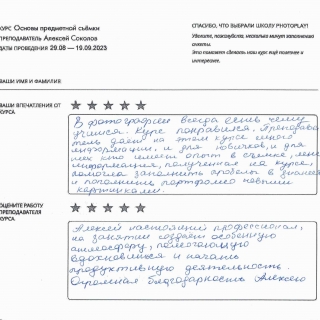 КУРС Основы предметной съёмки
ПРЕПОДАВАТЕЛЬ Алексей Соколов
ДАТЫ ПРОВЕДЕНИЯ 29.08 — 19.09.2023
СПАСИБО, ЧТО ВЫБРАЛИ ШКОЛУ PHOTOPLAY!
И, пожалуйста, несколько минут заполнению
анкеты.
Это поможет сделать наш курс ещё полезнее и
интереснее.
ВАШИ ИМЯ И ФАМИЛИЯ:
ВАШИ ВПЕЧАТЛЕНИЯ ОТ
КУРСА
В фотографии всегда есть чему
учиться. Курс понравился. Преподава
тель даёт на этом курсе много
информации, и для новичков, и для
тех кто имеет опыт в съёмке,
информация, полученная на курсе,
помогла заполнить пробелы в знаниях
и пополнить портфолио новыми
картинками.
ОЦЕНИТЕ РАБОТУ
ПРЕПОДАВАТЕЛЯ
КУРСА
Алексей настоящий профессионал,
на занятии создаёт особенную
атмосферу, помогающую
вдохновиться и начать
продуктивную деятельность.
Огромная благодарность Алексею